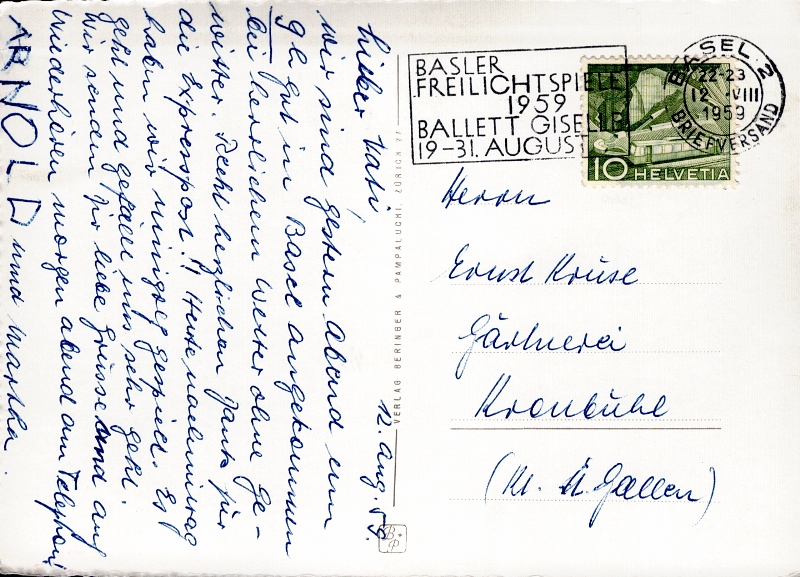 BASLER
FREILICHTSPIELE
1959
BALLETT GISELLE
19-31. AUGUST
BASEL 2
22-23
12. VIII
1959
BRIEFVERSAND
10 HELVETIA
Herrn
Ernst Kruse
Gärtnerei
Kronbühl
(Kt. St. Gallen)
VERLAG BERINGER & PAMPALUCHI, ZÜRICH 77
B
P
12. Aug. 59.
Lieber Vati,
wir sind gestern Abend um
9h gut in Basel angekommen
bei herrlichem Wetter ohne Ge-
witter. Recht herzlichen Dank für
die Expresspost!! Heute nachmittag
haben wir minigolf gespielt. Es
geht und gefällt uns sehr gut.
Wir senden Dir liebe Grüsse und auf
Wiederhören morgen abend am Telephon
ARNOLD und Martha.